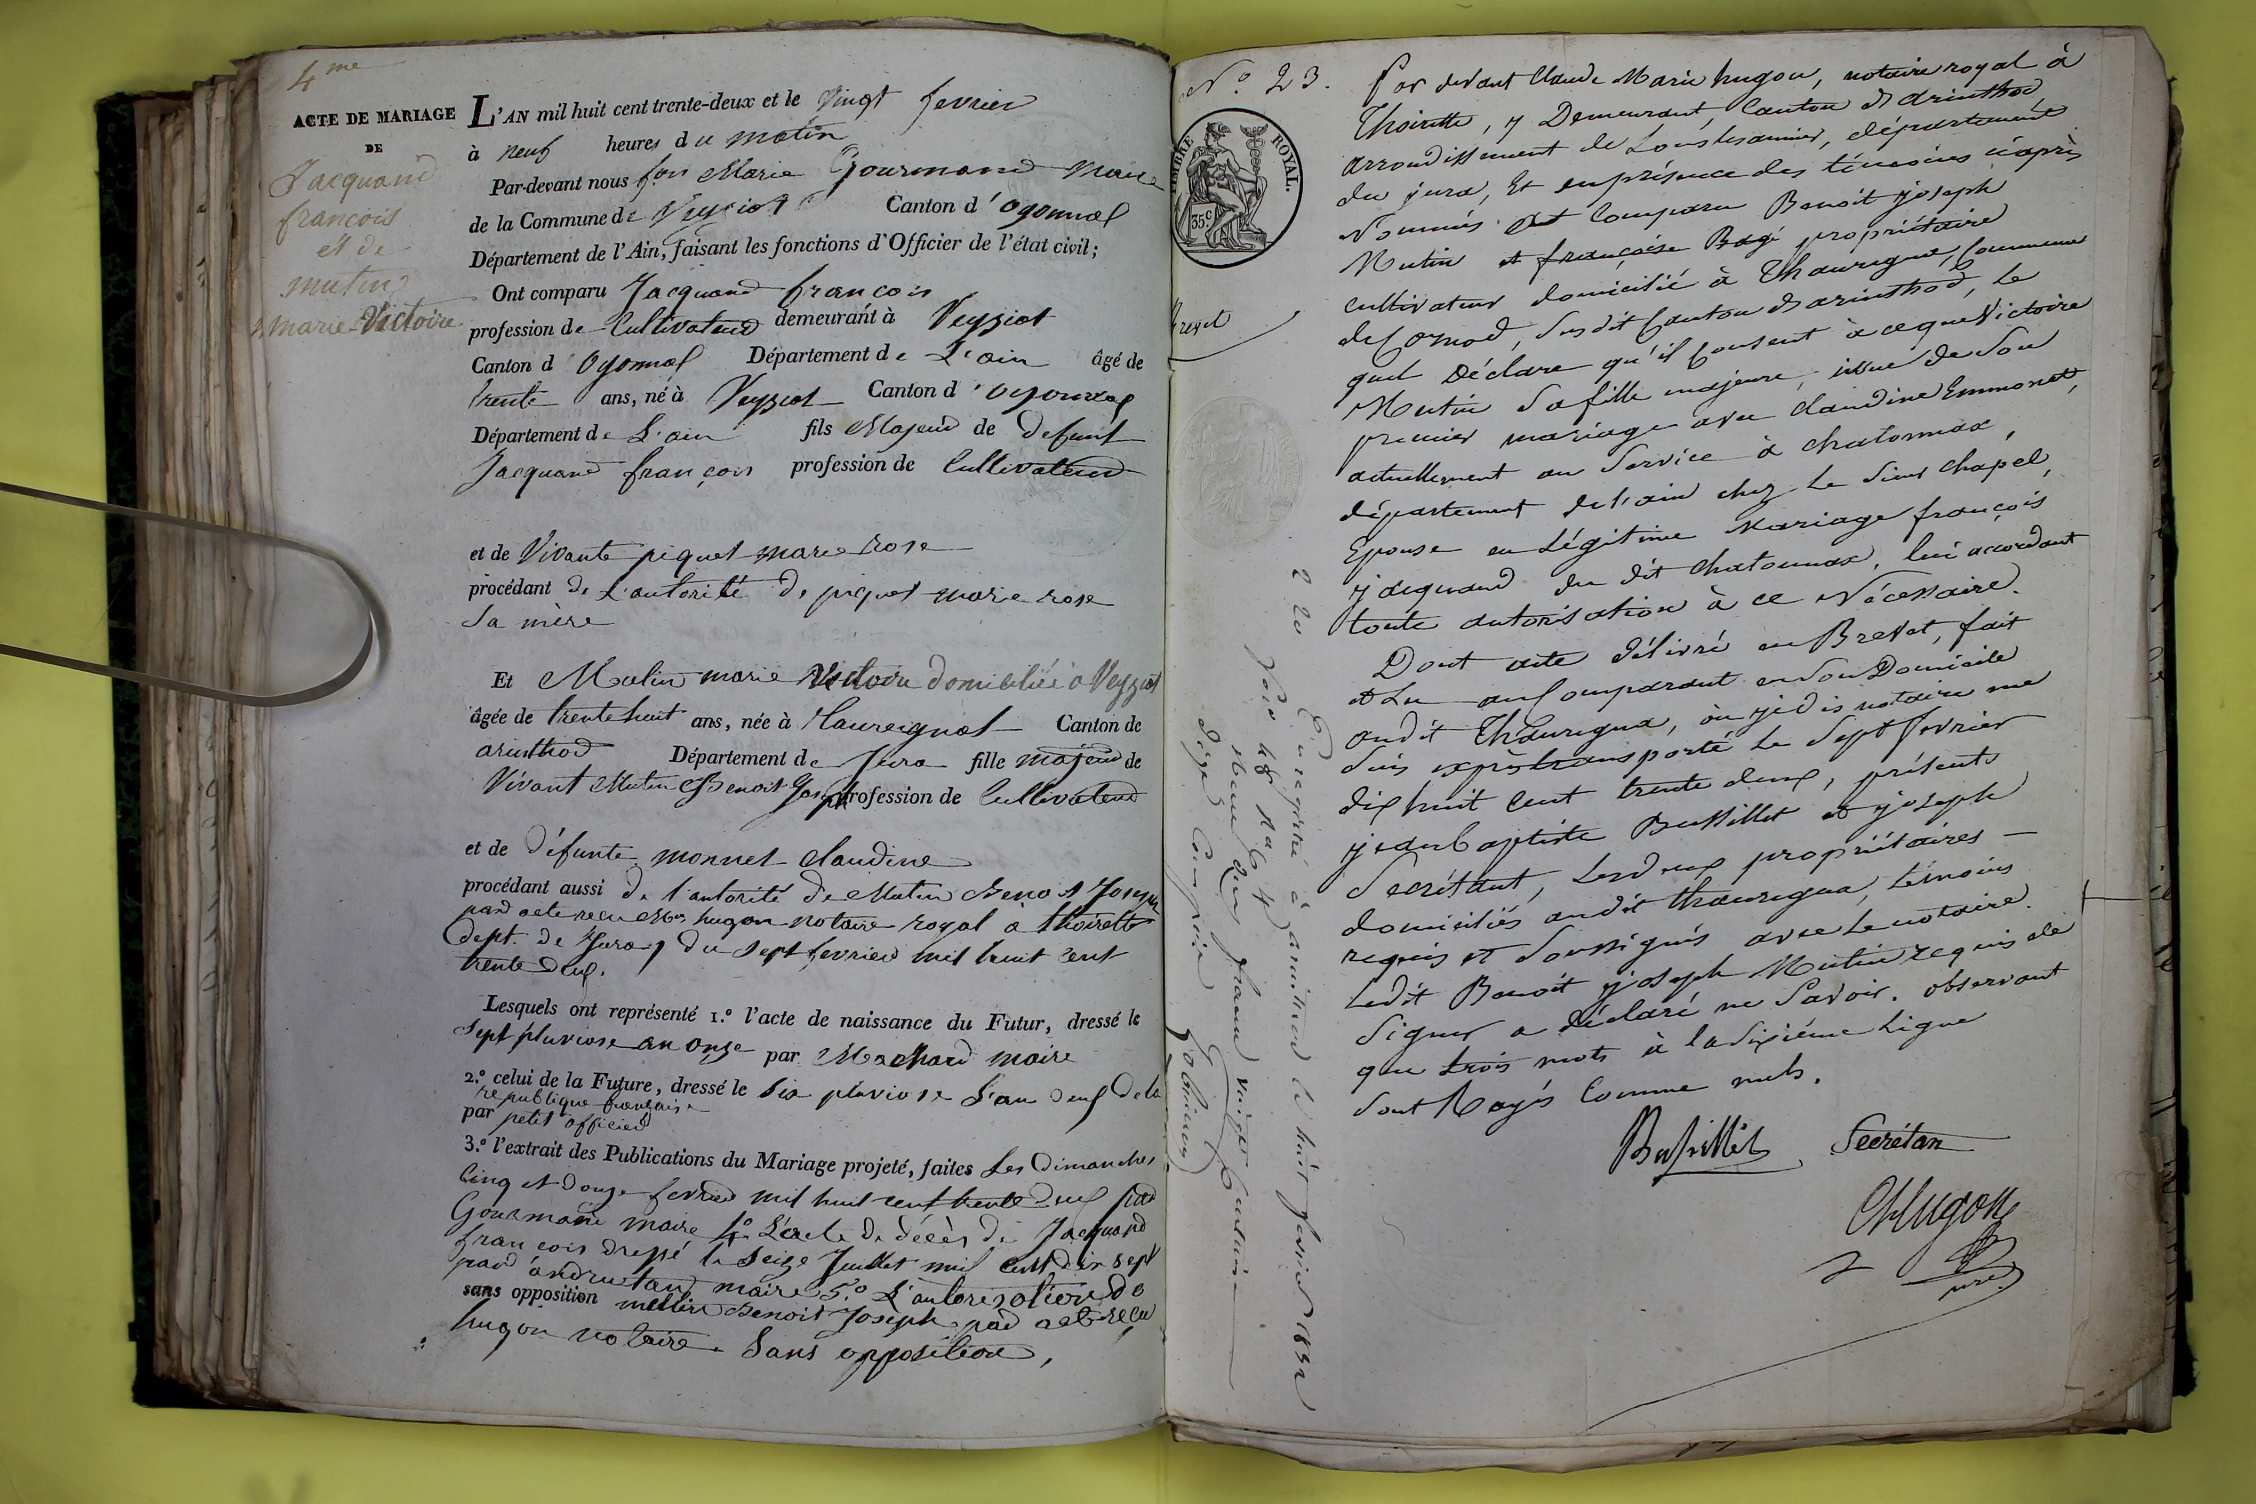 4me
ACTE DE MARIAGE
DE
Jacquand
françois
et de
mutin
marie Victoire
L'AN mil huit cent trente-deux et le vingt fevrier
à neuf heures du matin
Par-devant nous fois Marie Gourmand Maire
de la Commune de Veyziat Canton d'Oyonnax
Département de l'Ain, faisant les fonctions d'Officier de l'état civil;
Ont comparu Jacquand françois
profession de Cultivateur demeurant à Veyziat
Canton d'Oyonnax Département de L'ain âgé de
trente ans, né à Veyziat Canton d'oyonnax
Département de L'ain fils Majeur de defunt
Jacquand françois profession de Cultivateur
et de Vivante piquet marie rose
procédant de L'autorité de piquet marie rose
Sa mère
Et Mutin marie Victoire domiciliée à Veyziat
âgée de trente huit ans, née à Thaureignat Canton de
arinthod Département de Jura fille majeur de
Vivant Mutin Benoit Joseph profession de Cultivateur
et de défunte monnet claudine
procédant aussi de l'autorité de Mutin Benoit Joseph
par acte recu hugon notaire royal à thoirette
dept. de Jura, du sept fevrier mil huit cent
trente deux.
Lesquels ont représenté 1.º l'acte de naissance du Futur, dressé le
sept pluviose an onze par Machard maire
2.º celui de la Future, dressé le six pluviose L'an deux de la
republique française
par petit officier
3.º l'extrait des Publications du Mariage projeté, faites Les Dimanches
Cinq et douze fevrier mil huit cent trente deux par
Gourmand maire 4º L'acte de décès de Jacquand
françois dressé le seize Juillet mil cent dix sept
par andrutan maire 5.º L'autorisation de
sans opposition mutin Benoit Joseph par acte reçu
hugon notaire. Sans opposition,
Nº 23.
TIMBRE ROYAL.
35c
Brevet
Par devant Claude Marie hugon, notaire royal à
Thoirette, y Demeurant, Canton d'arinthod
arrondissement de Lonslesaunier, département
du jura, Et en présence des témoins ciaprès
Nommés Est Comparu Benoit joseph
Mutin et françoise Bagé propriétaire
cultivateur domicilié à Thauregna, Commune
de Cornod, susdit Canton d'arinthod, Le
quel Déclare qu'il Consent à ce que Victoire
Mutin Sa fille majeure, issue de Son
premier mariage avec claudine Emmonet,
actuellement au Service à chatonnax,
département de l'ain chez Le Sieur Chapel,
Epouse en Légitime Mariage françois
yacquand du dit Chatonnax, lui accordant
toute autorisation à ce Nécessaire.
Dont acte délivré en Brevet, fait
et Lu au Comparant en son Domicile
audit Thauregna, où je dis notaire me
Suis exprès transporté Le Sept fevrier
dix huit Cent trente deux, présents
jean Baptiste Bussillet et joseph
Secrétant, Les deux propriétaires
domiciliés audit thauregna, témoins
requis et Soussignés avec Le notaire.
Ledit Benoit joseph Mutin requis de
Signer a déclaré ne Savoir. observant
que trois mots à la Sixième Ligne
sont Rayés Comme nuls.
Bussillet Secrétan
CMHugon
Enregistré à arinthod le huit fevrier 1832
folio 48 Rº C 4